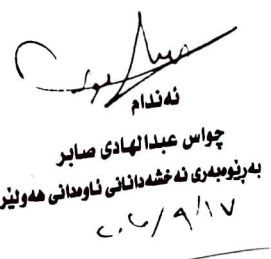 ئەندام
چواس عبدالهادی صابر
بەڕێوەبەری نەخشەدانانی ئاوەدانی هەولێر
٢٠٢٤/٩/١٧